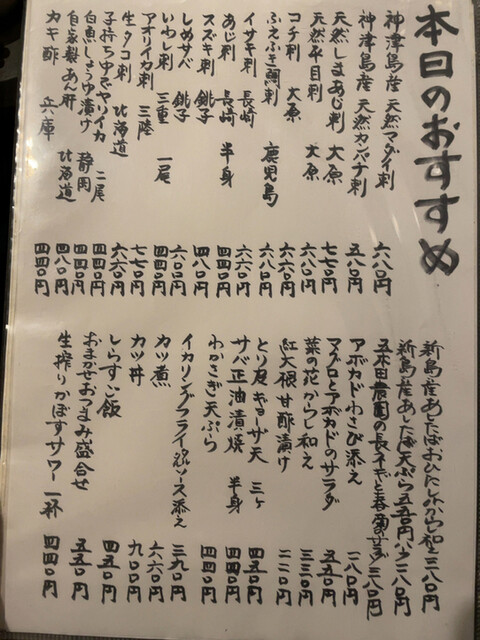 本日のおすすめ
神津島産 天然マダイ刺 六八〇円
神津島産 天然カンパチ刺 五八〇円
天然しまあじ刺 大原 七七〇円
天然平目刺 大原 六八〇円
コチ刺 大原 六六〇円
ふえふき鯛刺 鹿児島 六八〇円
イサキ刺 長崎 六六〇円
あじ刺 長崎 半身 四四〇円
スズキ刺 銚子 四八〇円
しめサバ 銚子 六六〇円
いわし刺 三重 一尾 四四〇円
アオリイカ刺 三陸 七七〇円
生タコ刺 北海道 六六〇円
子持ちゆでヤリイカ 二尾 四四〇円
白魚しょうゆ漬け 静岡 四四〇円
自家製あん肝 北海道 四八〇円
カキ酢 兵庫 四四〇円
新島産あしたばおひたし/からし和え 三八〇円
新島産あしたば天ぷら五五〇円、少三八〇円
五木田農園の長ネギと春菊のサラダ 三八〇円
アボカドわさび添え 二八〇円
マグロとアボカドのサラダ 五五〇円
菜の花からし和え 三三〇円
紅大根甘酢漬け 二二〇円
とり皮ギョーザ天 三ヶ 四五〇円
サバ正油漬焼 半身 四四〇円
わかさぎ天ぷら 四四〇円
イカリングフライ ソース添え 三九〇円
カツ煮 六六〇円
カツ丼 九〇〇円
しらすご飯 四五〇円
おまかせおつまみ盛合せ 五五〇円
生搾りかぼすサワー 一杯 四四〇円